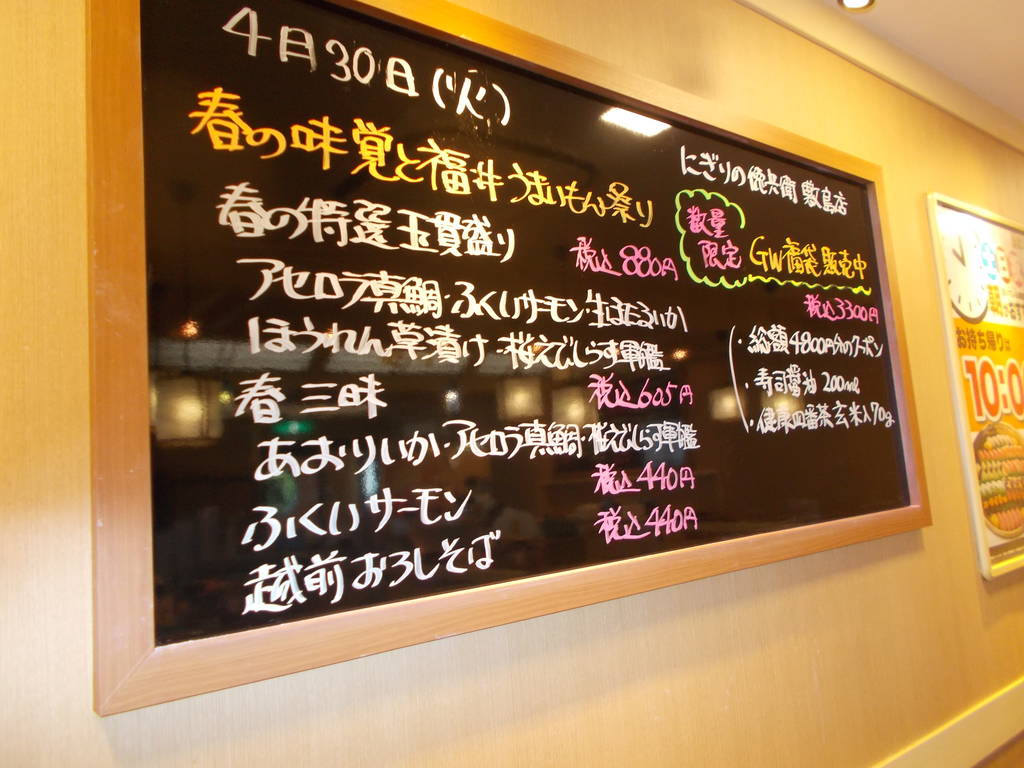 4月30日(火)
春の味覚と福井うまいもん祭り
春の特選五貫盛り
税込880円
アセロラ真鯛・ふくいサーモン・生ほたるいか
ほうれん草漬け・桜えびしらす軍艦
春三昧
税込605円
あおりいか・アセロラ真鯛・桜えびしらす軍艦
税込440円
ふくいサーモン
税込440円
越前おろしそば
にぎりの徳兵衛 敷島店
数量
限定
GW福袋販売中
税込3300円
・総額4800円分のクーポン
・寿司醤油 200ml
・健康四番茶玄米入70g
お持ち帰りは
10:0